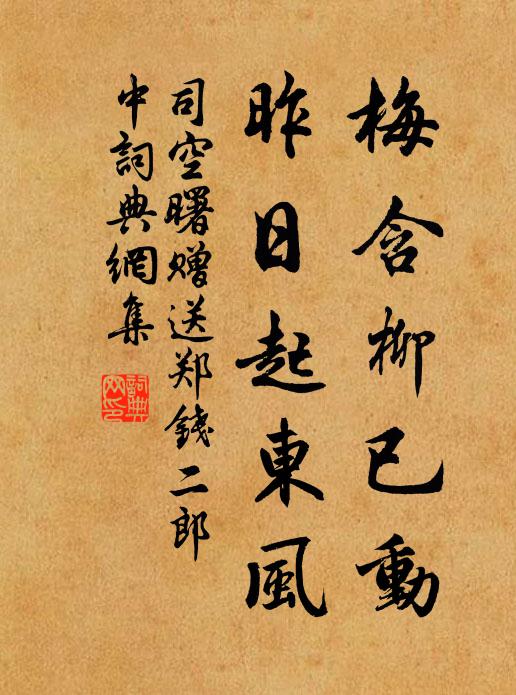 梅含柳已動
昨日起東風
司空曙赠送郑錢二郎
中詞典網集
詞典
网印